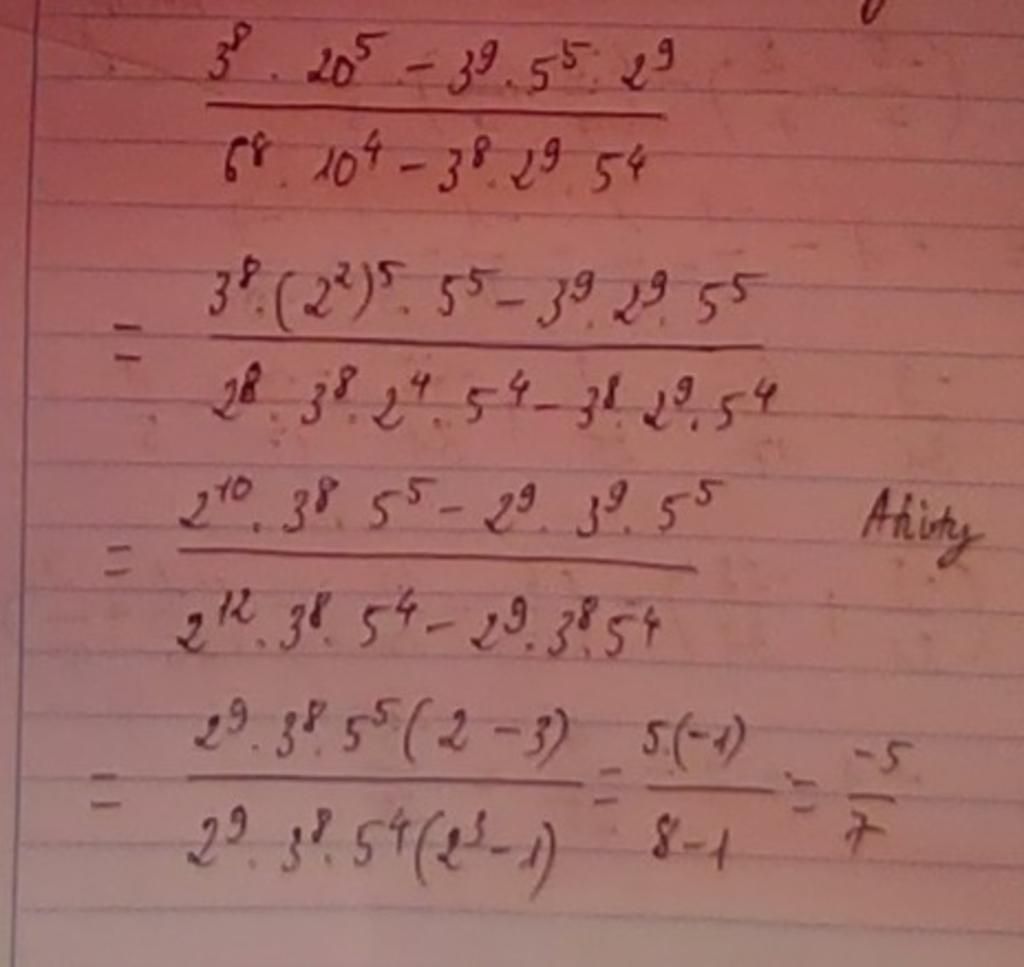 3⁸ . 20⁵ - 3⁹ . 5⁵ . 2⁹
6⁸ . 10⁴ - 3⁸ . 2⁹ . 5⁴
= 3⁸ . (2²)⁵ . 5⁵ - 3⁹ . 2⁹ . 5⁵
2⁸ . 3⁸ . 2⁴ . 5⁴ - 3⁸ . 2⁹ . 5⁴
= 2¹⁰ . 3⁸ . 5⁵ - 2⁹ . 3⁹ . 5⁵
2¹² . 3⁸ . 5⁴ - 2⁹ . 3⁸ . 5⁴
= 2⁹ . 3⁸ . 5⁵ (2 - 3) = 5.(-1) = -5
2⁹ . 3⁸ . 5⁴ (2³ - 1) 8 - 1 7